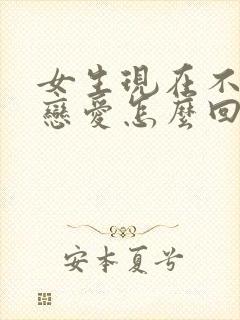 女生現在不
戀愛怎麼回
安本夏兮